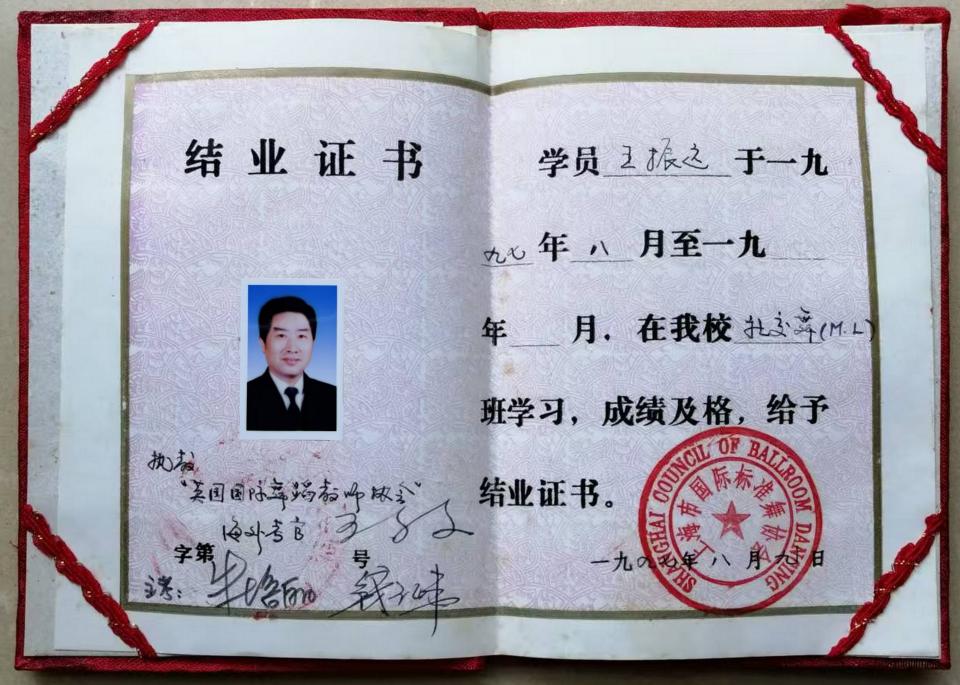 结业证书
执教
"英国国际舞蹈教师协会"
海外考官
字第 号
主考:
学员 王振远 于一九
九七 年 八 月至一九
年 月,在我校 社交舞(M.L)
班学习,成绩及格,给予
结业证书。
一九九七年八月九日
SHANGHAI COUNCIL OF BALLROOM DANCING
上海市国际标准舞协会